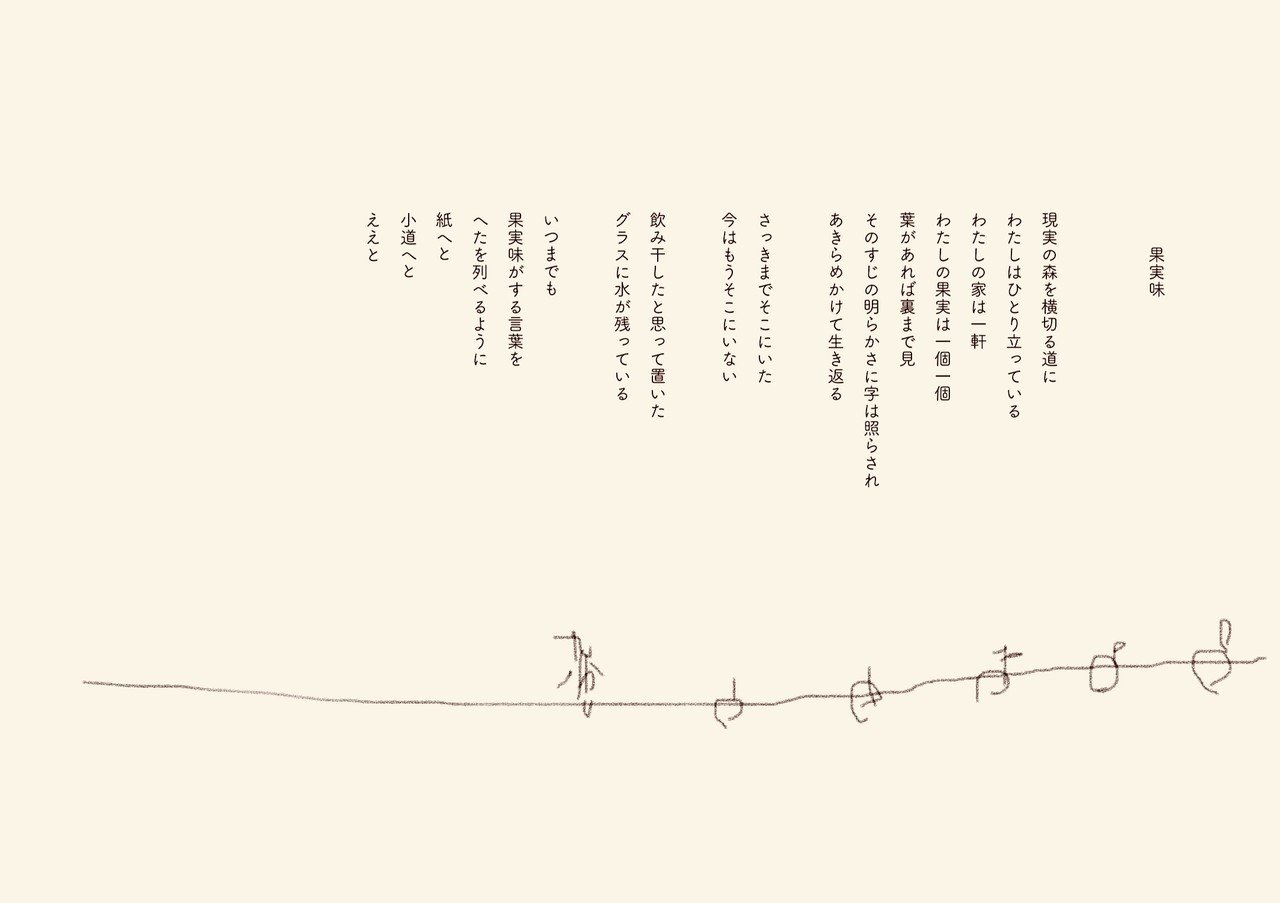 果実味
現実の森を横切る道に
わたしはひとり立っている
わたしの家は一軒
わたしの果実は一個一個
葉があれば裏まで見
そのすじの明らかさに字は照らされ
あきらめかけて生き返る
さっきまでそこにいた
今はもうそこにいない
飲み干したと思って置いた
グラスに水が残っている
いつまでも
果実味がする言葉を
へたを列べるように
紙へと
小道へと
ええと